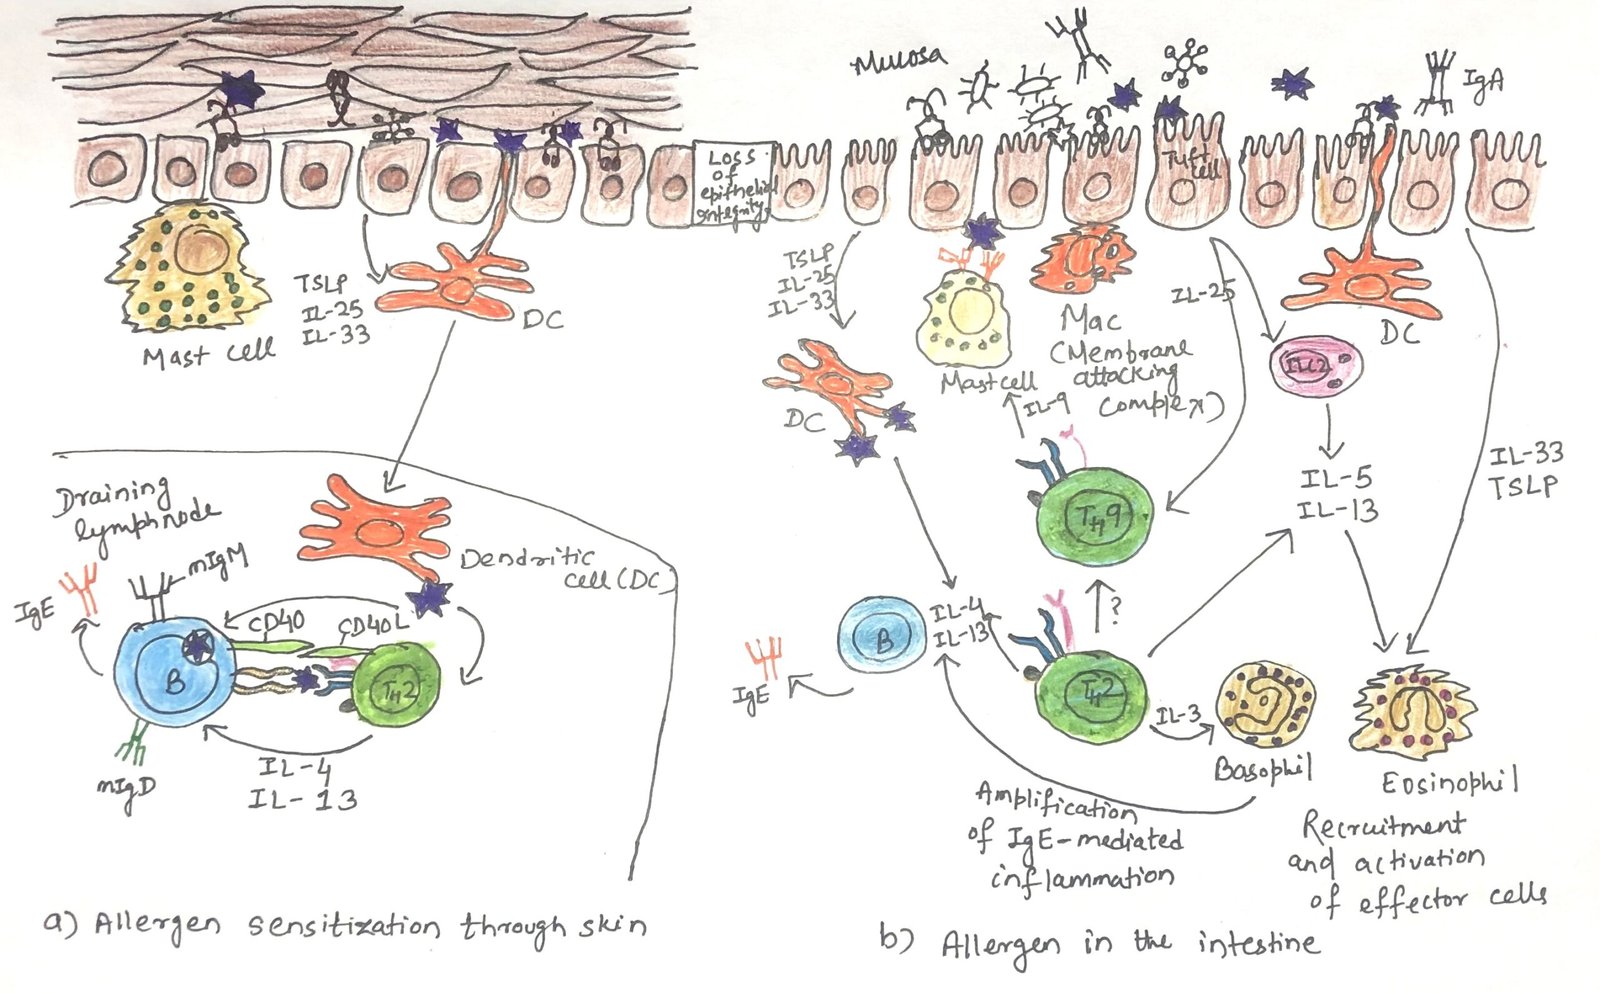 Loss
of
epithelial
integrity
Mast cell
TSLP
IL-25
IL-33
DC
Draining
lymph node
mIgM
IgE
Dendritic
cell (DC)
CD40
CD40L
B
TH2
mIgD
IL-4
IL-13
a) Allergen sensitization through skin
Mucosa
IgA
Tuft
cell
TSLP
IL-25
IL-33
DC
Mast cell
Mac
(Membrane
attacking
complex)
IL-25
ILC2
DC
IL-9
TH9
IL-5
IL-13
IL-33
TSLP
?
B
IL-4
IL-13
IgE
TH2
IL-3
Basophil
Eosinophil
Amplification
of IgE-mediated
inflammation
Recruitment
and activation
of effector cells
b) Allergen in the intestine